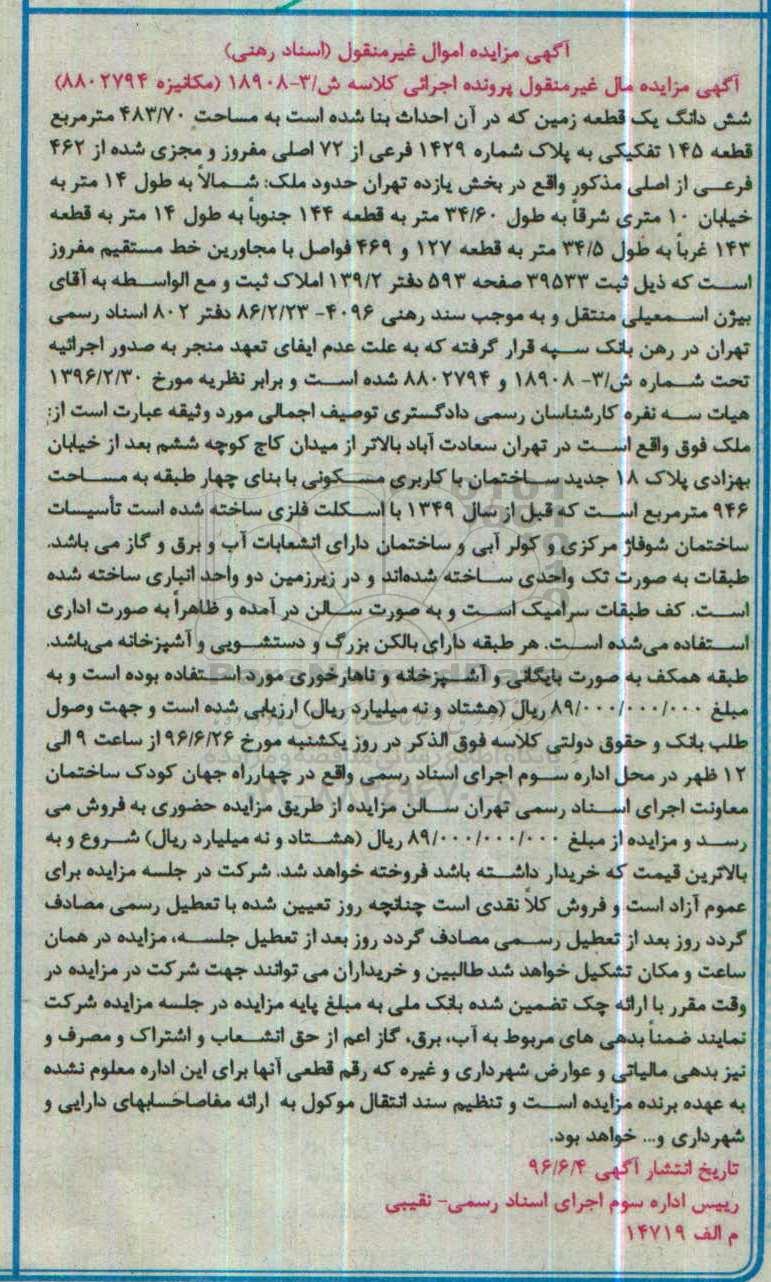 آگهی مزایده اموال غیرمنقول (اسناد رهنی)
آگهی مزایده مال غیرمنقول پرونده اجرائی کلاسه ش/۳-۱۸۹۰۸ (مکانیزه ۸۸۰۲۷۹۴)
شش دانگ یک قطعه زمین که در آن احداث بنا شده است به مساحت ۴۸۳/۷۰ مترمربع
قطعه ۱۴۵ تفکیکی به پلاک شماره ۱۴۲۹ فرعی از ۷۲ اصلی مفروز و مجزی شده از ۴۶۲
فرعی از اصلی مذکور واقع در بخش یازده تهران حدود ملک: شمالاً به طول ۱۴ متر به
خیابان ۱۰ متری شرقاً به طول ۳۴/۶۰ متر به قطعه ۱۴۴ جنوباً به طول ۱۴ متر به قطعه
۱۴۳ غرباً به طول ۳۴/۵ متر به قطعه ۱۲۷ و ۴۶۹ فواصل با مجاورین خط مستقیم مفروز
است که ذیل ثبت ۳۹۵۳۳ صفحه ۵۹۳ دفتر ۱۳۹/۲ املاک ثبت و مع الواسطه به آقای
بیژن اسمعیلی منتقل و به موجب سند رهنی ۴۰۹۶- ۸۶/۲/۲۳ دفتر ۸۰۲ اسناد رسمی
تهران در رهن بانک سپه قرار گرفته که به علت عدم ایفای تعهد منجر به صدور اجرائیه
تحت شماره ش/۳- ۱۸۹۰۸ و ۸۸۰۲۷۹۴ شده است و برابر نظریه مورخ ۱۳۹۶/۲/۳۰
هیات سه نفره کارشناسان رسمی دادگستری توصیف اجمالی مورد وثیقه عبارت است از:
ملک فوق واقع است در تهران سعادت آباد بالاتر از میدان کاج کوچه ششم بعد از خیابان
بهزادی پلاک ۱۸ جدید ساختمان با کاربری مسکونی با بنای چهار طبقه به مساحت
۹۴۶ مترمربع است که قبل از سال ۱۳۴۹ با اسکلت فلزی ساخته شده است تأسیسات
ساختمان شوفاژ مرکزی و کولر آبی و ساختمان دارای انشعابات آب و برق و گاز می باشد.
طبقات به صورت تک واحدی ساخته شده‌اند و در زیرزمین دو واحد انباری ساخته شده
است. کف طبقات سرامیک است و به صورت سالن در آمده و ظاهراً به صورت اداری
استفاده می‌شده است. هر طبقه دارای بالکن بزرگ و دستشویی و آشپزخانه می‌باشد.
طبقه همکف به صورت بایگانی و آشپزخانه و ناهارخوری مورد استفاده بوده است و به
مبلغ ۸۹/۰۰۰/۰۰۰/۰۰۰ ریال (هشتاد و نه میلیارد ریال) ارزیابی شده است و جهت وصول
طلب بانک و حقوق دولتی کلاسه فوق الذکر در روز یکشنبه مورخ ۹۶/۶/۲۶ از ساعت ۹ الی
۱۲ ظهر در محل اداره سوم اجرای اسناد رسمی واقع در چهارراه جهان کودک ساختمان
معاونت اجرای اسناد رسمی تهران سالن مزایده از طریق مزایده حضوری به فروش می
رسد و مزایده از مبلغ ۸۹/۰۰۰/۰۰۰/۰۰۰ ریال (هشتاد و نه میلیارد ریال) شروع و به
بالاترین قیمت که خریدار داشته باشد فروخته خواهد شد. شرکت در جلسه مزایده برای
عموم آزاد است و فروش کلاً نقدی است چنانچه روز تعیین شده با تعطیل رسمی مصادف
گردد روز بعد از تعطیل رسمی مصادف گردد روز بعد از تعطیل جلسه، مزایده در همان
ساعت و مکان تشکیل خواهد شد طالبین و خریداران می توانند جهت شرکت در مزایده در
وقت مقرر با ارائه چک تضمین شده بانک ملی به مبلغ پایه مزایده در جلسه مزایده شرکت
نمایند ضمناً بدهی های مربوط به آب، برق، گاز اعم از حق انشعاب و اشتراک و مصرف و
نیز بدهی مالیاتی و عوارض شهرداری و غیره که رقم قطعی آنها برای این اداره معلوم نشده
به عهده برنده مزایده است و تنظیم سند انتقال موکول به ارائه مفاصاحسابهای دارایی و
شهرداری و... خواهد بود.
تاریخ انتشار آگهی ۹۶/۶/۴
رییس اداره سوم اجرای اسناد رسمی- نقیبی
م الف ۱۴۷۱۹